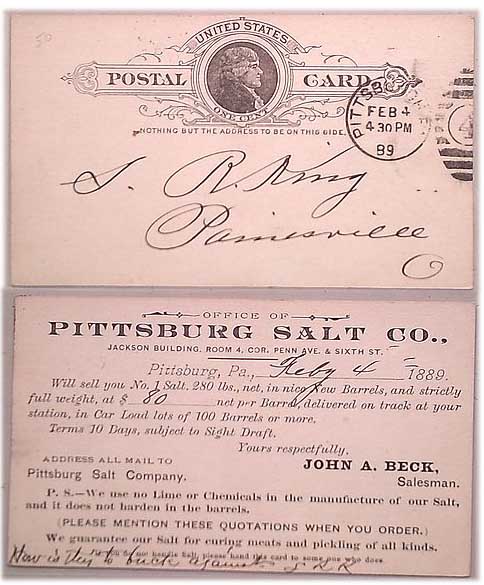 UNITED STATES
POSTAL CARD
ONE CENT
NOTHING BUT THE ADDRESS TO BE ON THIS SIDE.
PITTSBU
FEB 4
4 30 PM
89
4
S. R. King
Painesville
O
OFFICE OF
PITTSBURG SALT CO.,
JACKSON BUILDING, ROOM 4, COR. PENN AVE. & SIXTH ST.
Pittsburg, Pa., Feby 4 1889.
Will sell you No. 1 Salt, 280 lbs., net, in nice New Barrels, and strictly
full weight, at $ 80 net per Barrel, delivered on track at your
station, in Car Load lots of 100 Barrels or more.
Terms 10 Days, subject to Sight Draft.
Yours respectfully,
ADDRESS ALL MAIL TO
Pittsburg Salt Company.
JOHN A. BECK,
Salesman.
P. S.—We use no Lime or Chemicals in the manufacture of our Salt,
and it does not harden in the barrels.
(PLEASE MENTION THESE QUOTATIONS WHEN YOU ORDER.)
We guarantee our Salt for curing meats and pickling of all kinds.
If you do not handle Salt, please hand this card to some one who does.
How is this to buck against S R K